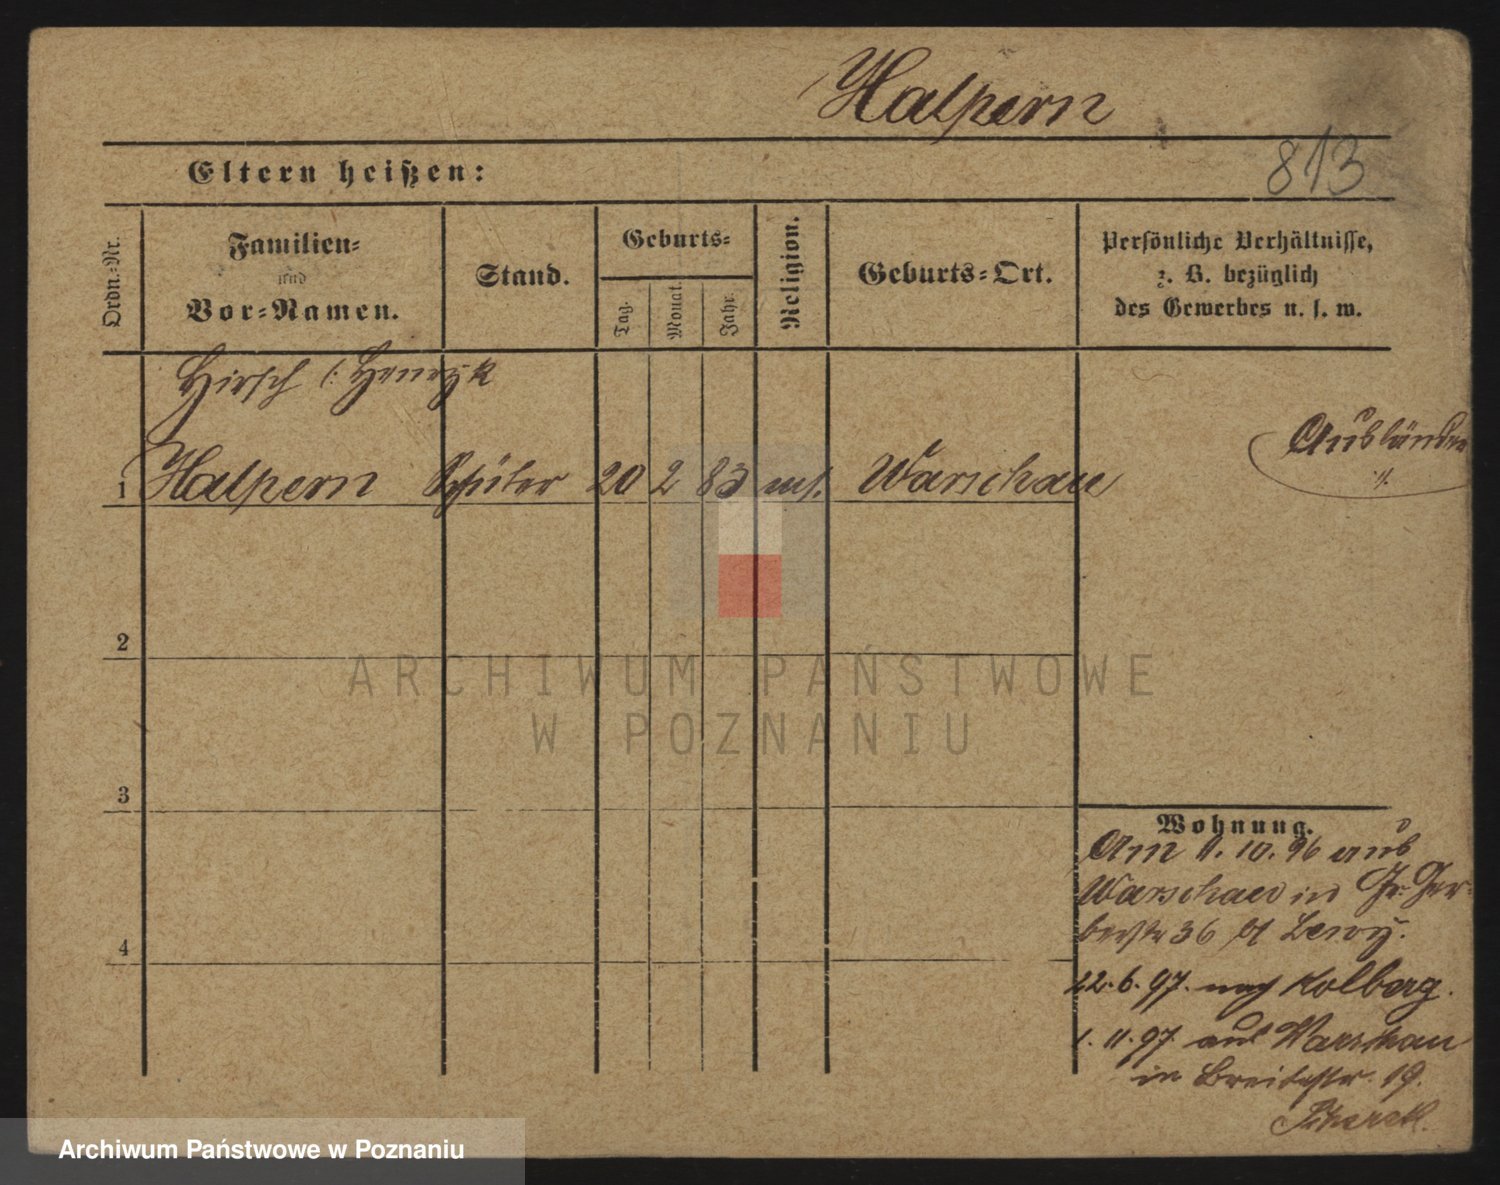 Halpern
813
Eltern heißen:
Ordn.-Nr.
Familien-
und
Vor-Namen.
Stand.
Geburts-
Tag.
Monat.
Jahr.
Religion.
Geburts-Ort.
Persönliche Verhältnisse,
z. B. bezüglich
des Gewerbes u. s. w.
Hirsch (: Henryk
1 Halpern Schüler 20 2 83 mos. Warschau
Ausländer
2
3
4
Wohnung.
Am 11. 10. 96 aus
Warschau in Gr. Ger-
berstr 36 Lewy.
22. 6. 97. nach Kolberg.
1. 11. 97. aus Warschau
in Breitestr. 19.
ARCHIWUM PAŃSTWOWE
W POZNANIU
Archiwum Państwowe w Poznaniu